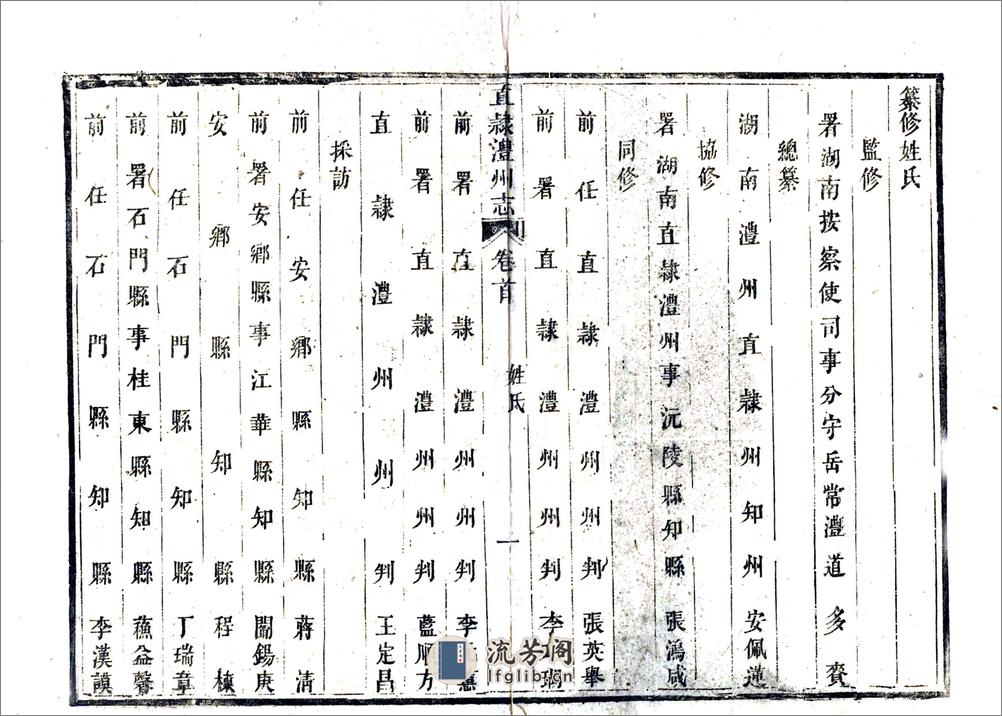 纂修姓氏
監修
署湖南按察使司事分守岳常澧道 多賚
總纂
湖南澧州直隸州知州 安佩蓮
協修
署湖南直隸澧州事沅陵縣知縣 張鴻箴
同修
前任直隸澧州州判 張英舉
前署直隸澧州州判 李
直隸澧州志 卷首 姓氏 一
前署直隸澧州州判 李
前署直隸澧州州判 藍順方
直隸澧州州判 王定昌
採訪
前任安鄉縣知縣 蔣清
前署安鄉縣事江華縣知縣 閻錫庚
安鄉縣知縣 程棟
前任石門縣知縣 丁瑞章
前署石門縣事桂東縣知縣 蘓益馨
前任石門縣知縣 李漢謨
流芳閣
lfglib.cn